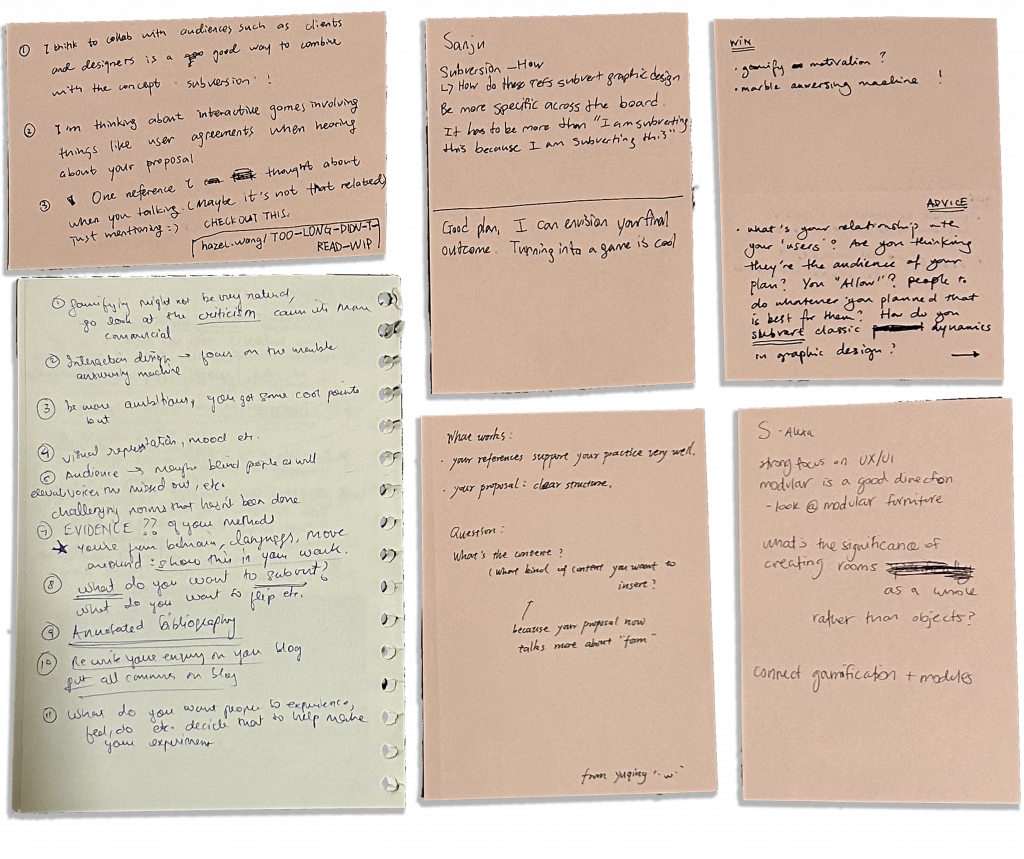 ① I think to collab with audiences such as clients
and designers is a good way to combine
with the concept - subversion !
② I'm thinking about interactive games involving
things like user agreements when hearing
about your proposal
③ One reference I thought about
when you talking. (Maybe it's not that related)
just mentioning :)
CHECK OUT THIS.
hazel.wang/TOO-LONG-DIDN-T-
READ-WIP
Sanju
Subversion — How
↳ How do these refs subvert graphic design
Be more specific across the board.
It has to be more than "I am subverting
this because I am subverting this"
Good plan, I can envision your final
outcome. Turning into a game is cool
WIN
· gamify motivation ?
· marble answering machine !
ADVICE
· what's your relationship with
your 'users'? Are you thinking
they're the audience of your
plan? You "Allow"? people to
do whatever you planned that
is best for them? How do you
subvert classic dynamics
in graphic design?
→
① Gamifying might not be very natural,
go look at the criticism cause its more
commercial
② Interaction design → focus on the marble
answering machine
③ be more ambitious, you got some cool points
but
④ visual representation, mood etc.
⑥ Audience → maybe blind people as well
elevat voices missed out, etc.
challenging norms that hasn't been done
⑦ EVIDENCE ?? of your methods
★ you're from bahrain, languages, move
around : show this in your work.
⑧ What do you want to subvert?
what do you want to flip etc.
⑨ Annotated bibliography
⑩ Re write your enquiry on your blog
put all comms on blog
⑪ What do you want people to experience,
feel, do etc. decide that to help make
your experiment
What works :
· your references support your practice very well.
· your proposal : clear structure.
Question :
What's the content ?
(What kind of content you want to
insert?
↑
because your proposal now
talks more about "form"
from yuqing '·w·'
S - Alexa
strong focus on UX/UI
modular is a good direction
- look @ modular furniture
what's the significance of
creating rooms
as a whole
rather than objects?
connect gamification + modules